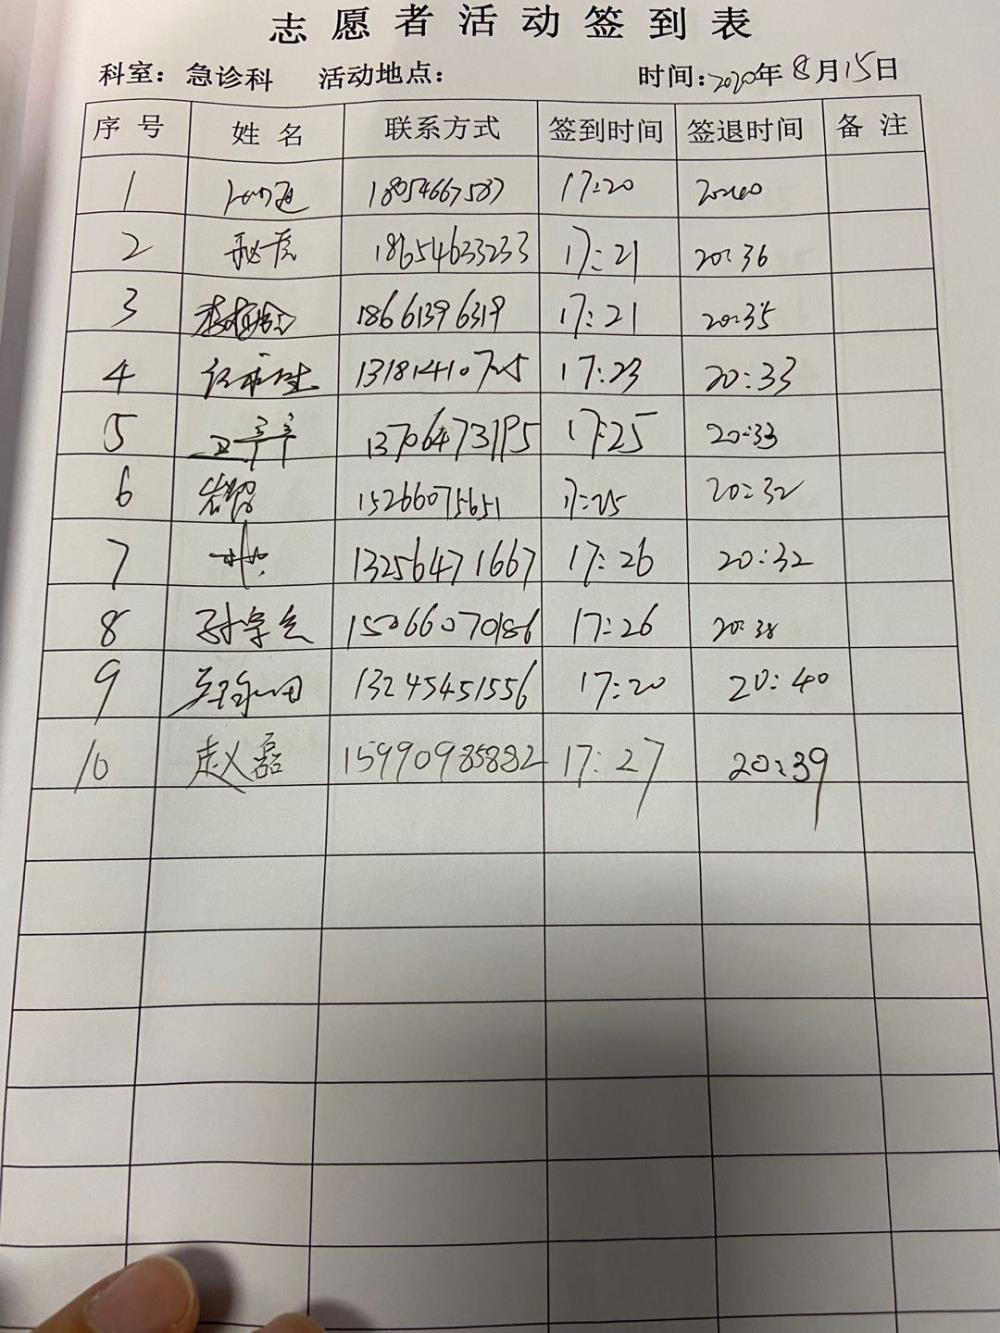 志愿者活动签到表
科室：急诊科 活动地点： 时间：2020年8月15日
序号 姓名 联系方式 签到时间 签退时间 备注
1 18054667587 17:20 20:40
2 18654633233 17:21 20:36
3 18661396319 17:21 20:35
4 13181410725 17:23 20:33
5 13706473195 17:25 20:33
6 15266075651 17:25 20:32
7 13256471667 17:26 20:32
8 17:26 20:38
9 13245451556 17:20 20:40
10 赵磊 15990985882 17:27 20:39